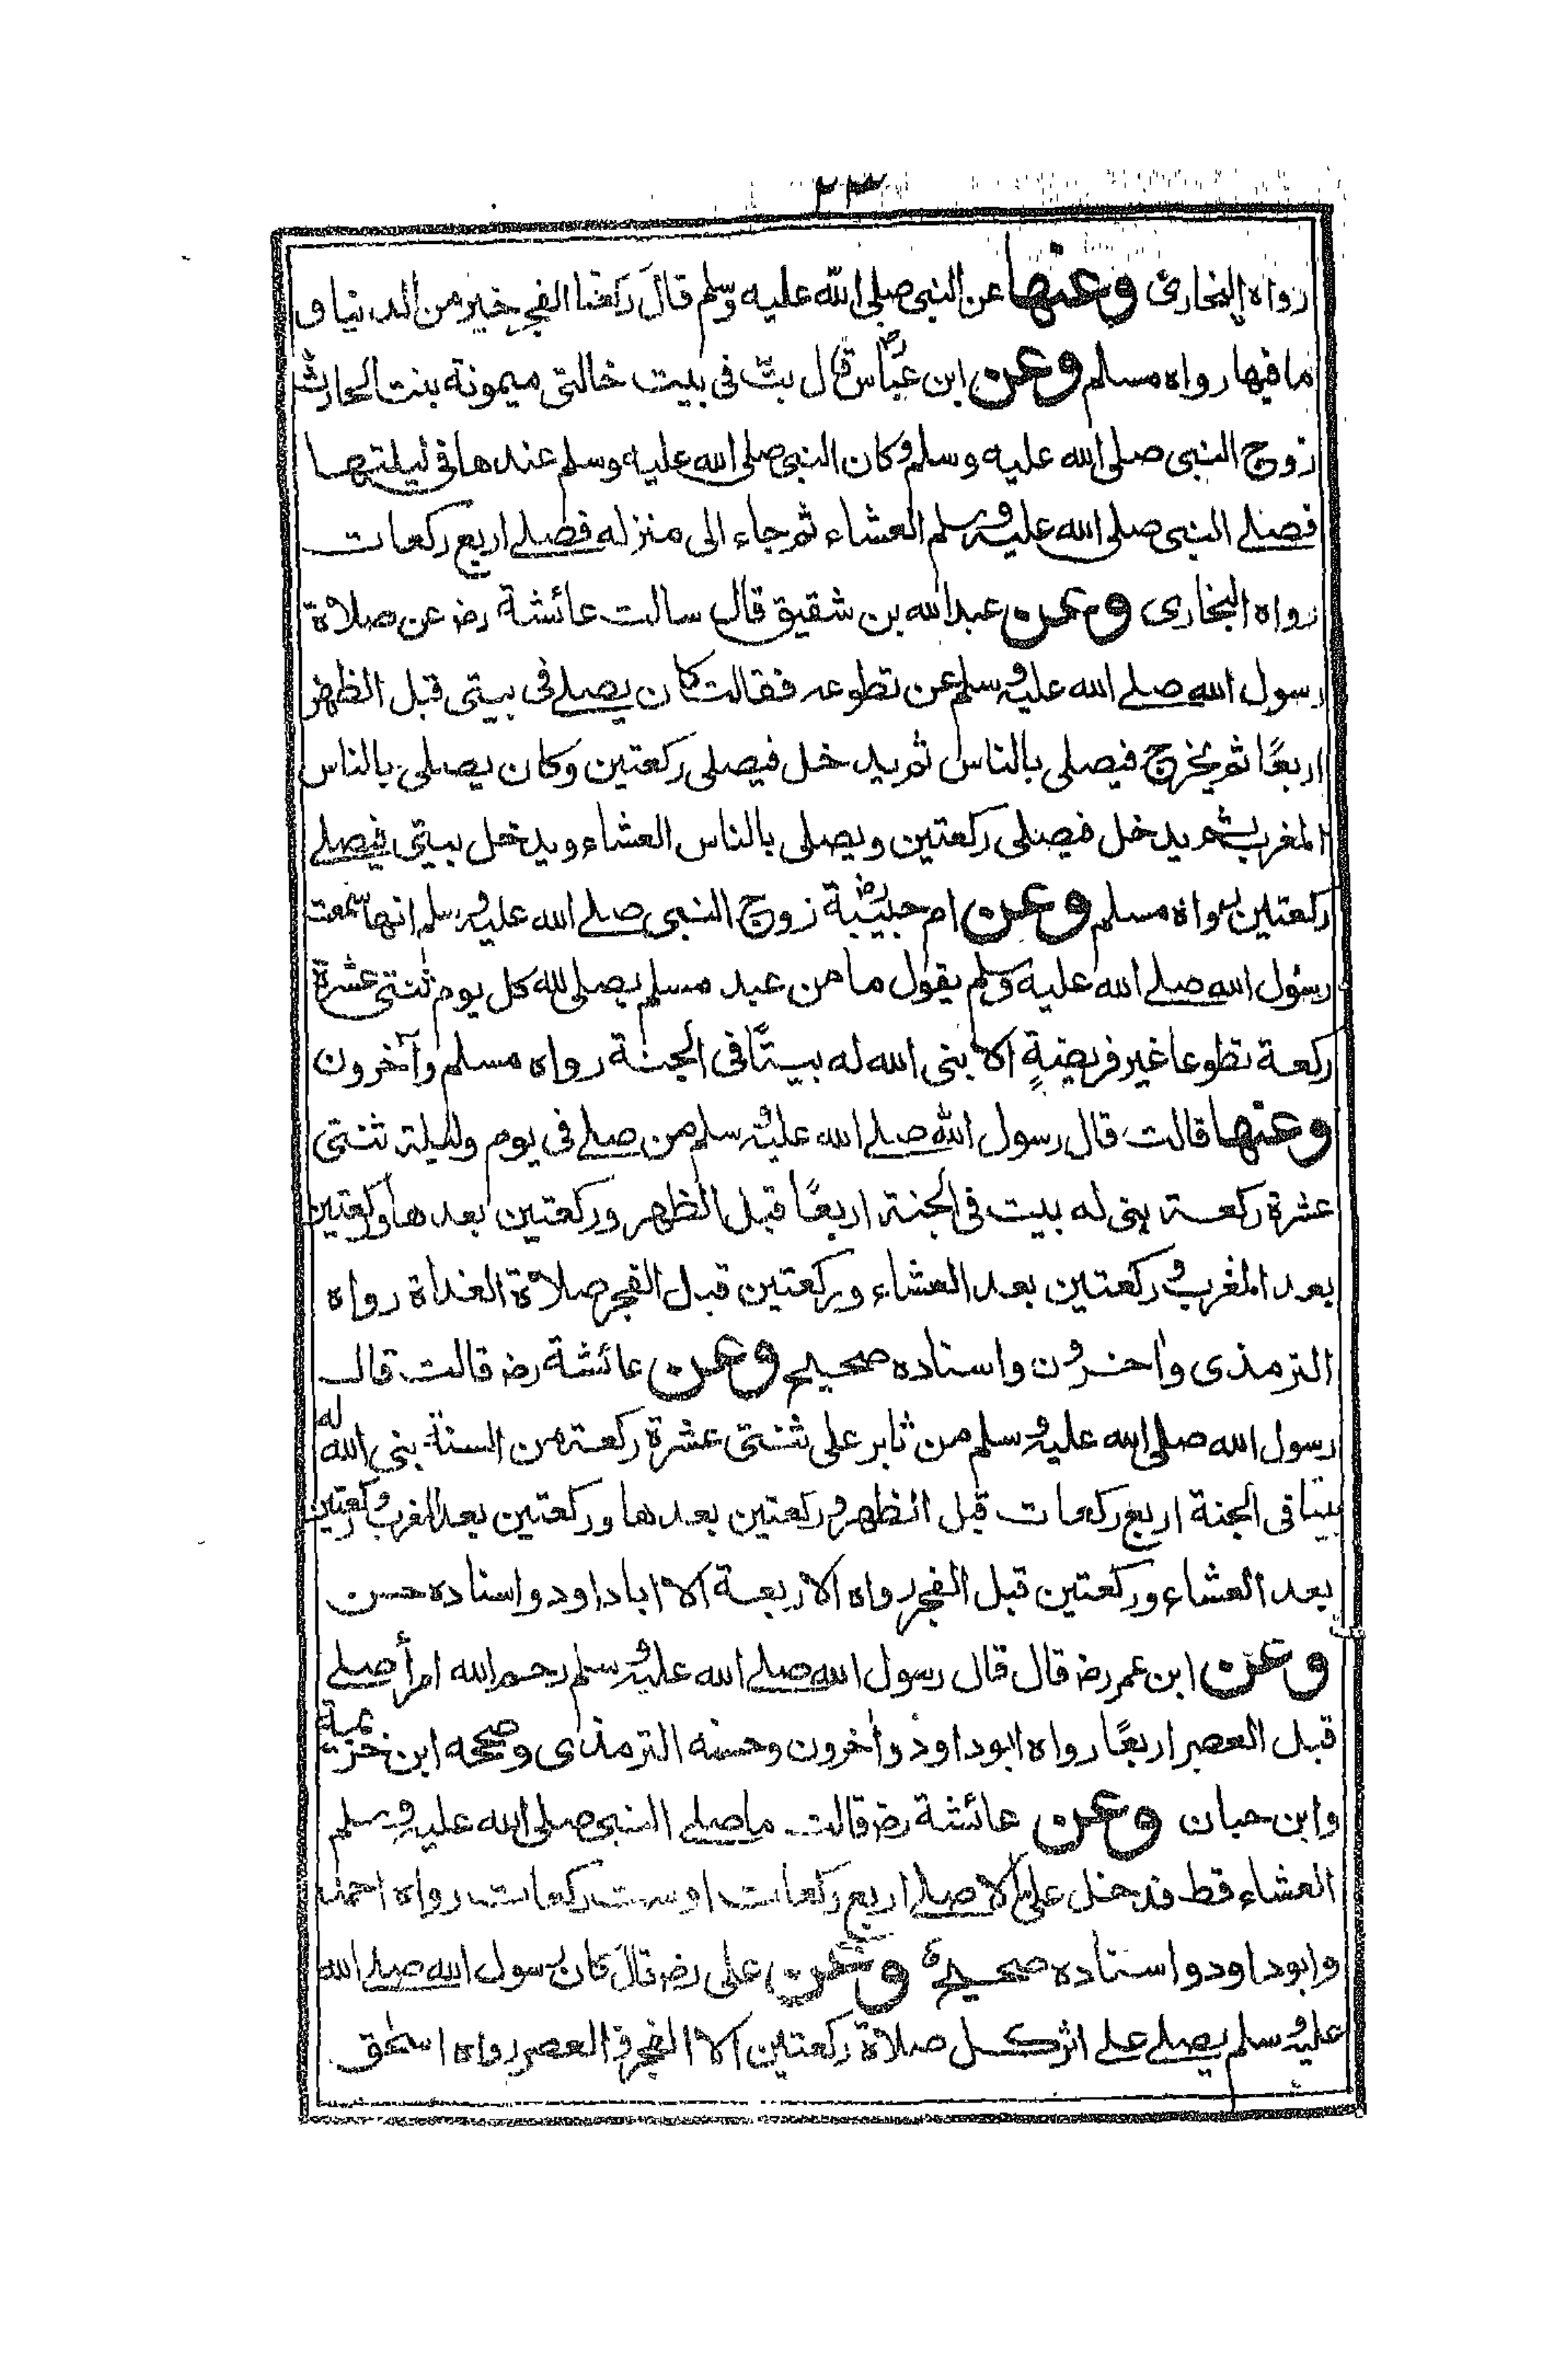 ٢٣
رواه البخاري وعنها عن النبي صلى الله عليه وسلم قال ركعتا الفجر خير من الدنيا و
ما فيها رواه مسلم وعن ابن عباس رض قال بت في بيت خالتي ميمونة بنت الحارث
زوج النبي صلى الله عليه وسلم وكان النبي صلى الله عليه وسلم عندها في ليلتها
فصلى النبي صلى الله عليه وسلم العشاء ثم جاء الى منزله فصلى اربع ركعات
رواه البخاري وعن عبد الله بن شقيق قال سالت عائشة رض عن صلاة
رسول الله صلى الله عليه وسلم عن تطوعه فقالت كان يصلى في بيتي قبل الظهر
اربعًا ثم يخرج فيصلى بالناس ثم يدخل فيصلى ركعتين وكان يصلى بالناس
المغرب ثم يدخل فيصلى ركعتين ويصلى بالناس العشاء ويدخل بيتي فيصلى
ركعتين رواه مسلم وعن ام حبيبة رض زوج النبي صلى الله عليه وسلم انها سمعت
رسول الله صلى الله عليه وسلم يقول ما من عبد مسلم يصلى لله كل يوم ثنتى عشرة
ركعة تطوعا غير فريضةٍ الا بنى الله له بيتًا في الجنة رواه مسلم وآخرون
وعنها قالت قال رسول الله صلى الله عليه وسلم من صلى في يوم وليلة ثنتى
عشرة ركعة بنى له بيت في الجنة اربعًا قبل الظهر وركعتين بعدها وركعتين
بعد المغرب وركعتين بعد العشاء وركعتين قبل الفجر صلاة الغداة رواه
الترمذى واخرون واسناده صحيح وعن عائشة رض قالت قال
رسول الله صلى الله عليه وسلم من ثابر على ثنتى عشرة ركعة من السنة بنى الله له
بيتا في الجنة اربع ركعات قبل الظهر وركعتين بعدها وركعتين بعد المغرب وركعتين
بعد العشاء وركعتين قبل الفجر رواه الاربعة الا ابا داود واسناده حسن
وعن ابن عمر رض قال قال رسول الله صلى الله عليه وسلم رحم الله امرأ صلى
قبل العصر اربعًا رواه ابوداود واخرون وحسنه الترمذى وصححه ابن خزيمة
وابن حبان وعن عائشة رض قالت ما صلى النبي صلى الله عليه وسلم
العشاء قط فدخل علي الا صلى اربع ركعات او ست ركعات رواه احمد
وابوداود واسناده صحيح وعن على رض قال كان رسول الله صلى الله
عليه وسلم يصلى على اثر كل صلاة ركعتين الا الفجر والعصر رواه اسحٰق